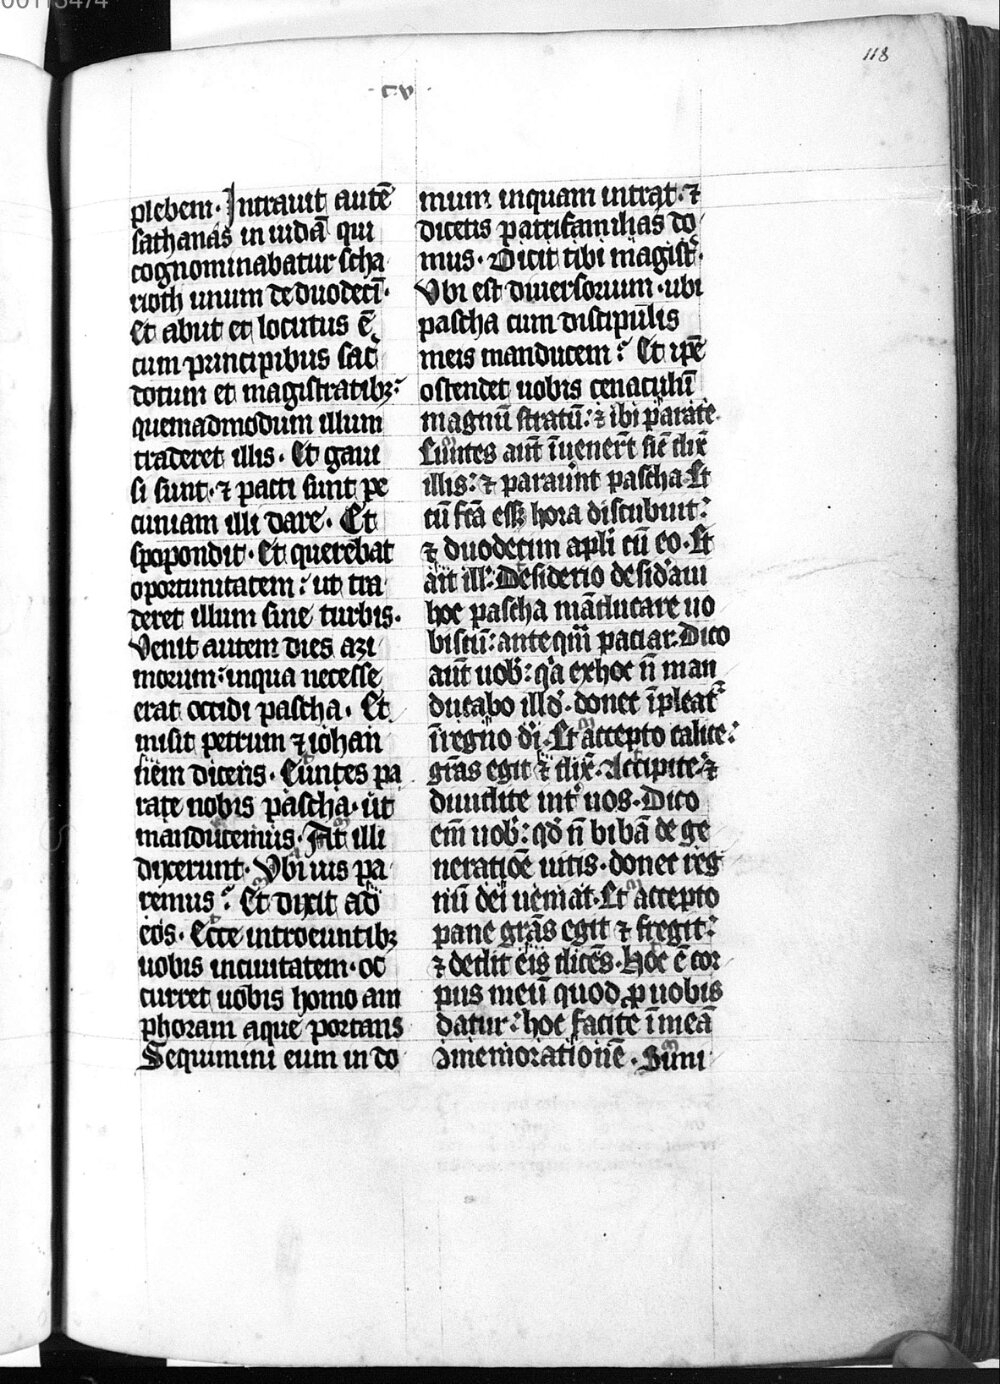 00113474
118
plebem. Intrauit autē
sathanas in iudā qui
cognominabatur scha
rioth unum de duodecī.
Et abiit et locutus ē
cum principibus sac
dotum et magistratibꝫ:
quemadmodum illum
traderet illis. Et gaui
si sunt. ⁊ pacti sunt pe
cuniam illi dare. Et
spopondit. Et querebat
oportunitatem: ut tra
deret illum sine turbis.
Venit autem dies azi
morum: inqua necesse
erat occidi pascha. Et
misit petrum ⁊ iohan
nem dicens. Euntes pa
rate nobis pascha. ut
manducemus. At illi
dixerunt. Vbi uis pa
remus? Et dixit ad
eos. Ecce introeuntibꝫ
uobis inciuitatem. oc
curret uobis homo am
phoram aque portans
Sequimini eum in do
mum inquam intrat. ⁊
dicetis patrifamilias do
mus. Dicit tibi magisť.
Vbi est diuersorium. ubi
pascha cum discipulis
meis manducem? Et ip̄e
ostendet uobis cenaculū
magnū stratū: ⁊ ibi parate.
Euntes aūt īuenert̄ sic̄ dix̄
illis: ⁊ parauīnt pascha. Et
cū fc̄a ess̄ hora discubuit:
⁊ duodecim apl̄i cū eo. Et
ait ill̄: Desiderio desid̓aui
hoc pascha māducare uo
biscū: anteqm̄ patiar. Dico
aūt uob̓: qa exhoc n̄ man
ducabo illd̓. donec īpleat᷑
īregno dī. Et accepto calice:
grās egit ⁊ dix̄. Accipite ⁊
diuidite int̓ uos. Dico
em̄ uob̓: qd̓ n̄ bibā de ge
neratiōe uitis. donec reg
nū dei ueniat. Et accepto
pane grās egit ⁊ fregit:
⁊ dedit eis dicēs. Hoc ē cor
pus meū quod ꝓ uobis
datur: hoc facite ī meā
ꝯmemorationē. Simi